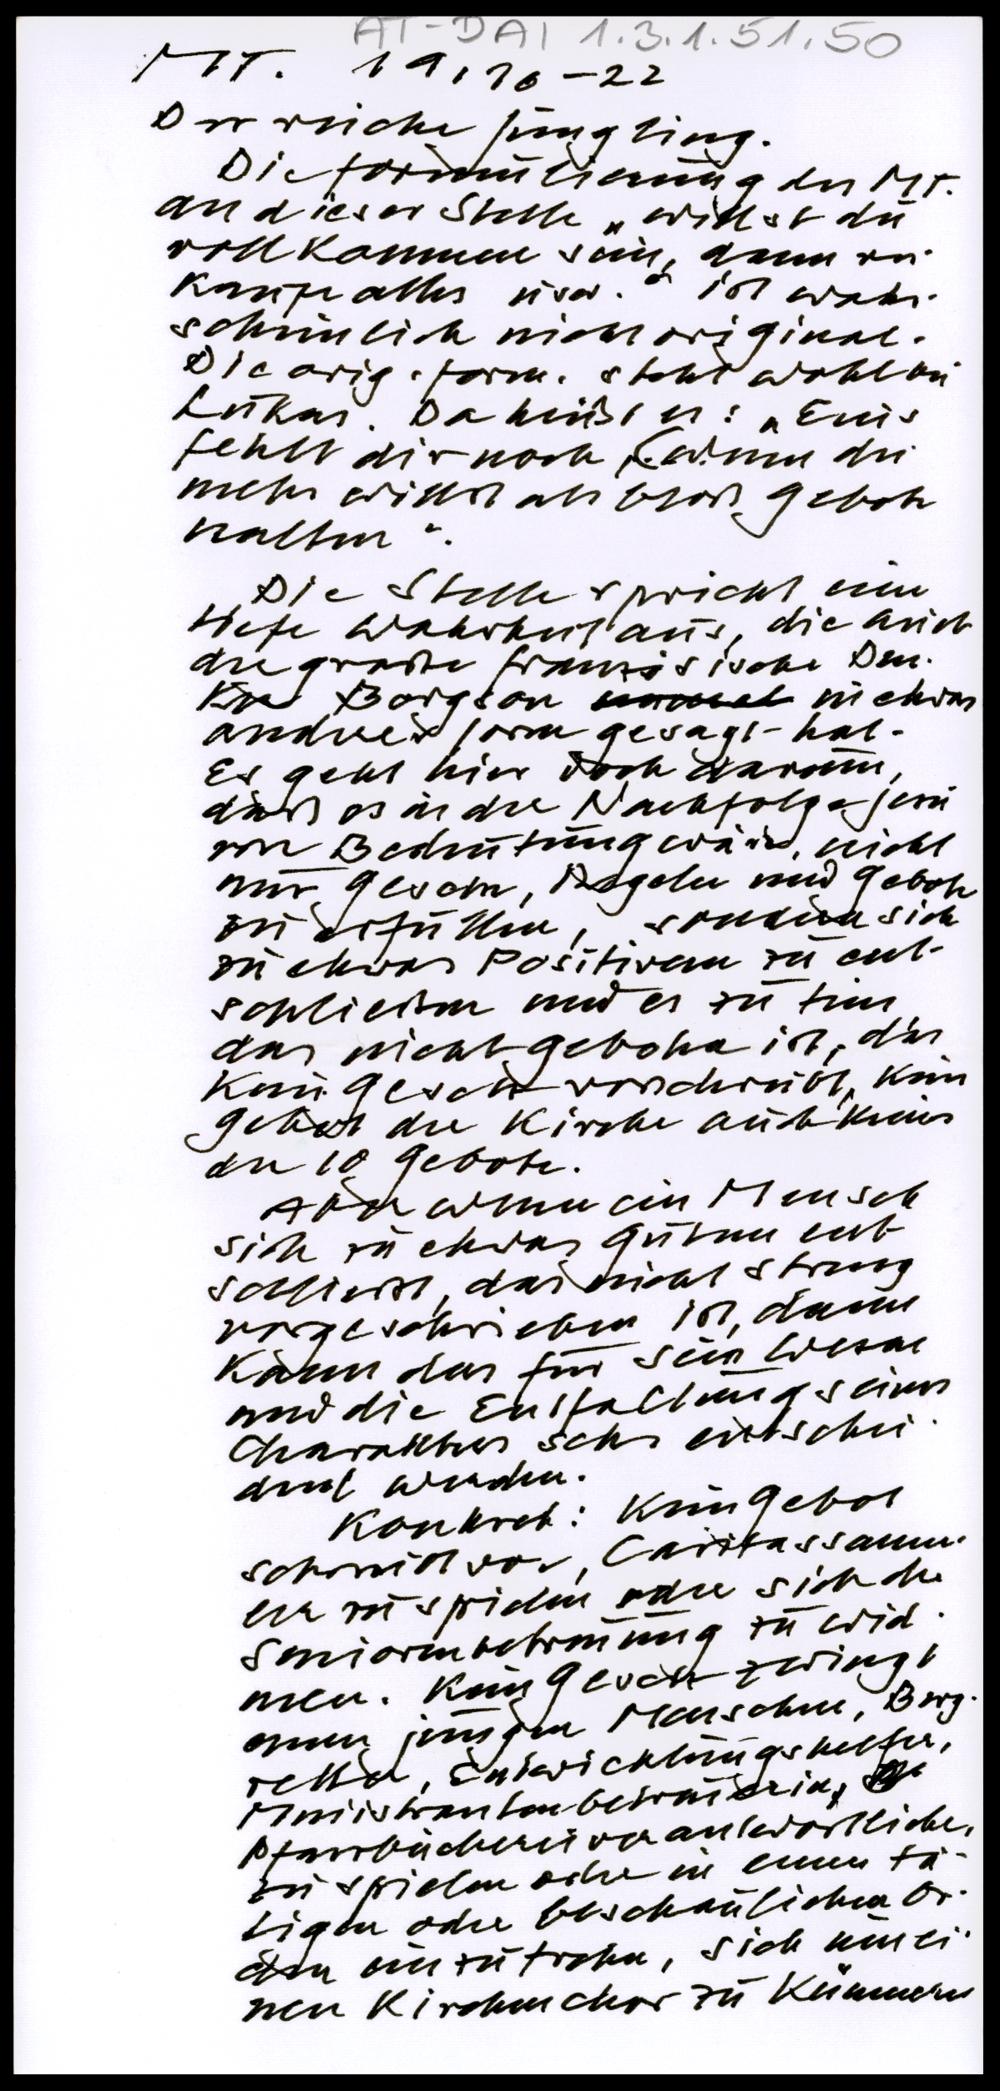 AT-DAI 1.3.1.51.50
MT. 19,16-22
Der reiche Jüngling.
Die Formulierung des MT.
an dieser Stelle „willst du
vollkommen sein, dann ver-
kaufe alles usw." ist wahr-
scheinlich nicht original.
Die orig. Form. steht wohl bei
Lukas. Da heißt es: „Eins
fehlt dir noch (wenn du
mehr willst als bloß Gebote
halten".
Die Stelle spricht eine
tiefe Wahrheit aus, die auch
der große französische Den-
ker Bergson in etwas
anderer Form gesagt hat.
Es geht hier doch darum,
daß es in der Nachfolge Jesu
von Bedeutung wäre, nicht
nur Gesetze, Regeln und Gebote
zu erfüllen, sondern sich
zu etwas Positivem zu ent-
schließen und es zu tun
das nicht geboten ist, das
kein Gesetz vorschreibt, kein
Gebot der Kirche auch keines
der 10 Gebote.
Aber wenn ein Mensch
sich zu etwas Gutem ent
schließt, das nicht streng
vorgeschrieben ist, dann
kann das für sein Wesen
und die Entfaltung seines
Charakters sehr entschei-
dend werden.
Konkret: Kein Gebot
schreibt vor, Caritassamm-
ler zu spielen oder sich der
Seniorenbetreuung zu wid-
men. Kein Gesetz zwingt
einen jungen Menschen, Berg-
retter, Entwicklungshelfer,
Ministrantenbetreuerin,
Pfarrbüchereiverantwortliche,
zu spielen oder in einen tä-
tigen oder beschaulichen Or-
den einzutreten, sich um ei-
nen Kirchenchor zu kümmern